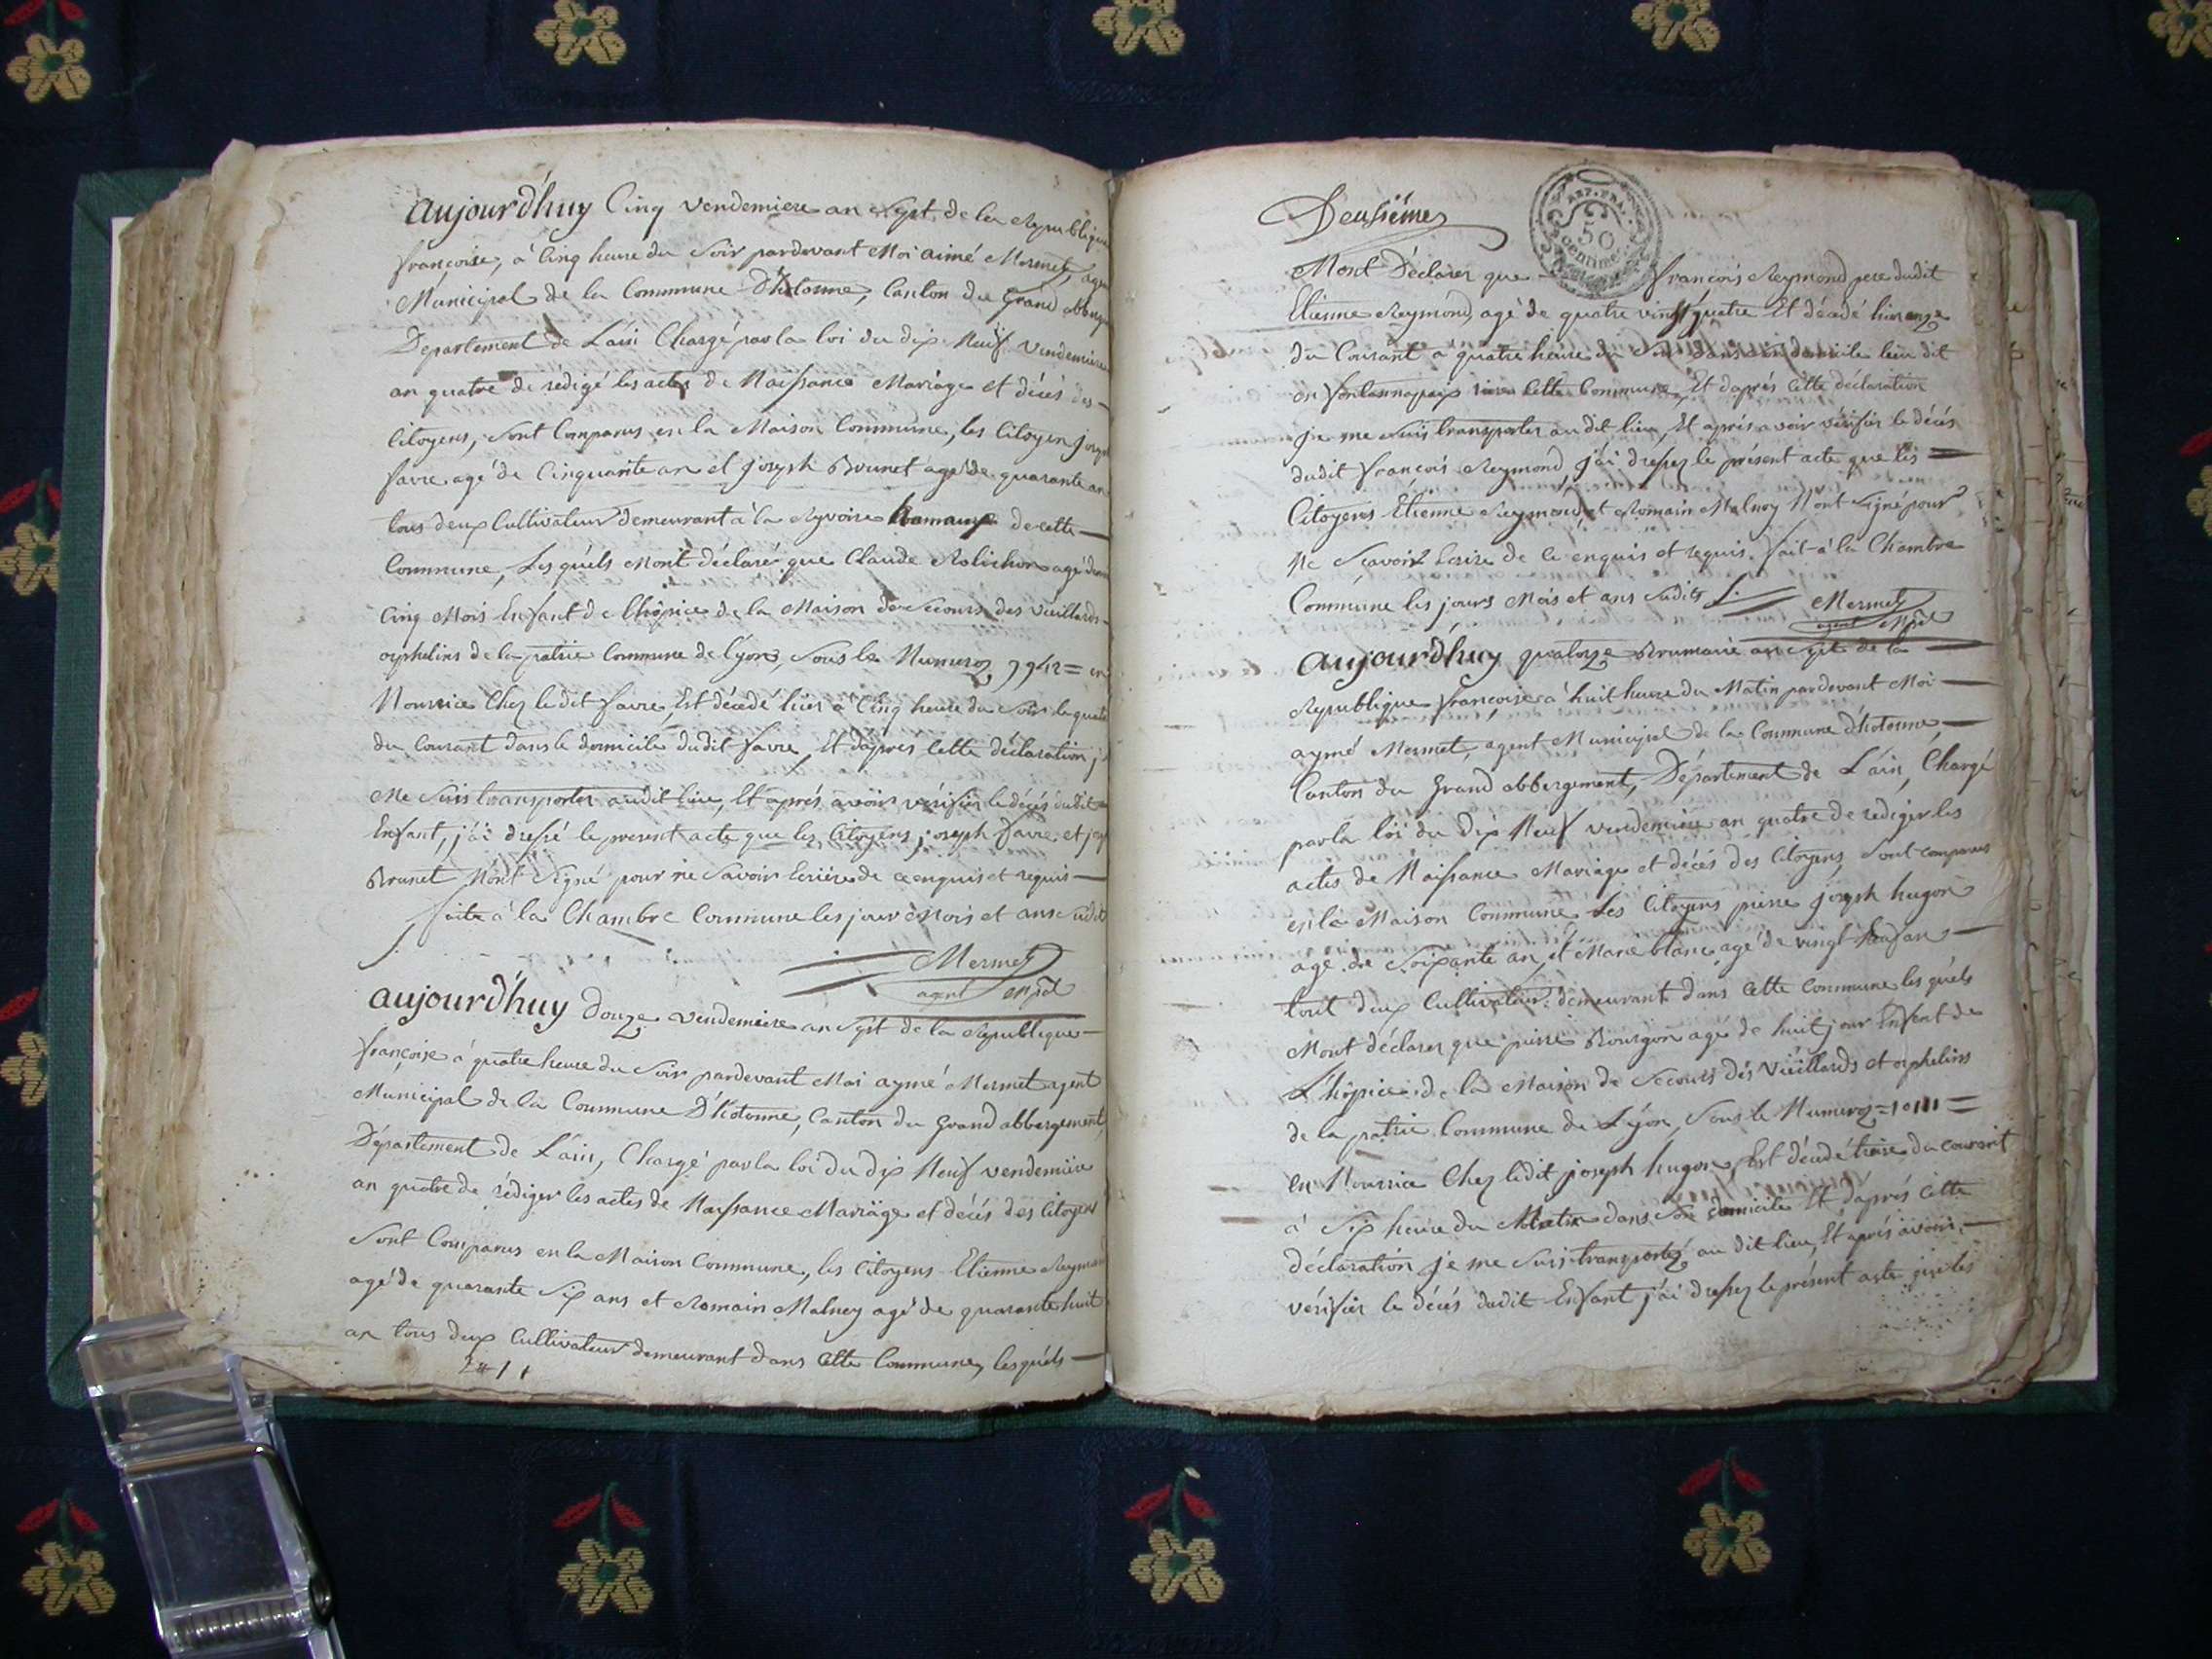 aujourd'huy Cinq vendemiere an sept de la Republique
françoise, à Cinq heure du Soir pardevant Moi aimé Mermet, agen
Municipal de la Commune D'hotonne, Canton du Grand abberge
Département de L'ain Chargé par la loi du dix Neuf vendemiere
an quatre de rédigé les actes de Naissance Mariage et décés des
Citoyens, Sont Comparus en la Maison Commune, les Citoyen josep
favre agé de Cinquante an et joseph Brunet agé de quarante an
tous deux Cultivateur demeurant à la Ryvoire hamaux de cette
Commune, Lesquéls Mont déclaré que Claude Rolichon agé de
Cinq Mois Enfant de lhospice de la Maison de Secours des vieillards
orphelins de la patrie Commune de Lyon, Sous le Numeroz 9942 = en
Nourrice Chez le dit favre, Est décédé hier à Cinq heure du Soir le quatr
du Courant dans le domicile dudit favre, Et daprés Cette déclaration j
Me Suis transporter audit lieu, Et aprés avoir vérifier le décés dudit
Enfant, j'ai dressé le present acte que les Citoyens joseph favre et jos
Brunet N'ont Signé pour ne Savoir Ecriére de ce enquis et requis
faite à la Chambre Commune les jour Mois et ans Sudit
Mermet
agent Mpal
aujourd'huy Douze vendemiere an Sept de la Republique
françoise à quatre heure du Soir pardevant Moi aymé Mermet agent
Municipal de la Commune D'hotonne, Canton du Grand abbergement,
Département de L'ain, Chargé par la loi du dix Neuf vendemiere
an quatre de rédiger les actes de Naissance Mariage et décés des Citoyen
Sont Comparus en la Maison Commune, les Citoyens Etienne Reymon
agé de quarante Six ans et Romain Malnoy agé de quarante huit
an tous deux Cultivateur demeurant dans Cette Commune, lesquéls
Deusiémes
REP. FRA.
50
centimes
Mont Déclarer que françois Reymond pere dudit
Etienne Reymond, agé de quatre vingt quatre Et décédé hier onze
du Courant a quatre heure du Soir dans son domicile lieu dit
en rière Cette Commune, Et daprés Cette déclaration
je me Suis transporter au dit lieu, Et aprés avoir vérifier le décés
dudit françois Reymond j'ai dressez le présent acte que les
Citoyens Etienne Reymond, et Romain Malnoy N'ont Signé pour
Ne Sçavoir Ecrire de ce enquis et requis. fait à la Chambre
Commune les jours Mois et ans Sudits
Mermet
agent Mpal
aujourd'huy quatorze Brumaire an Sept de la
Republique françoise à huit heure du Matin pardevant Moi
aymé Mermet, agent Municipal de la Commune d'hotonne,
Canton du Grand abbergement, Département de L'ain, Chargé
par la loi du Dix Neuf vendemiere an quatre de rediger les
actes de Naissance Mariage et décés des Citoyens, Sont comparus
en la Maison Commune Les Citoyens pierre joseph hugon
agé de Soixante an, et Marie blanc agé de vingt an
tout deux Cultivateur demeurant dans Cette Commune les quéls
Mont déclarer que pierre Bourgon agé de huit jour Enfent de
L'hospice de la Maison de Secours dés Viéillards et orphelins
de la patrie Commune de Lyon, Sous le Numeroz =10111=
en Nourrice Chez ledit joseph hugon, Est décédé treize du courant
à Six heure du Matin dans Son domicile Et d'aprés Cette
déclaration je me Suis transporté au dit lieu, Et aprés avoir
vérifier le décés dudit Enfant j'ai dressez le présent acte que les